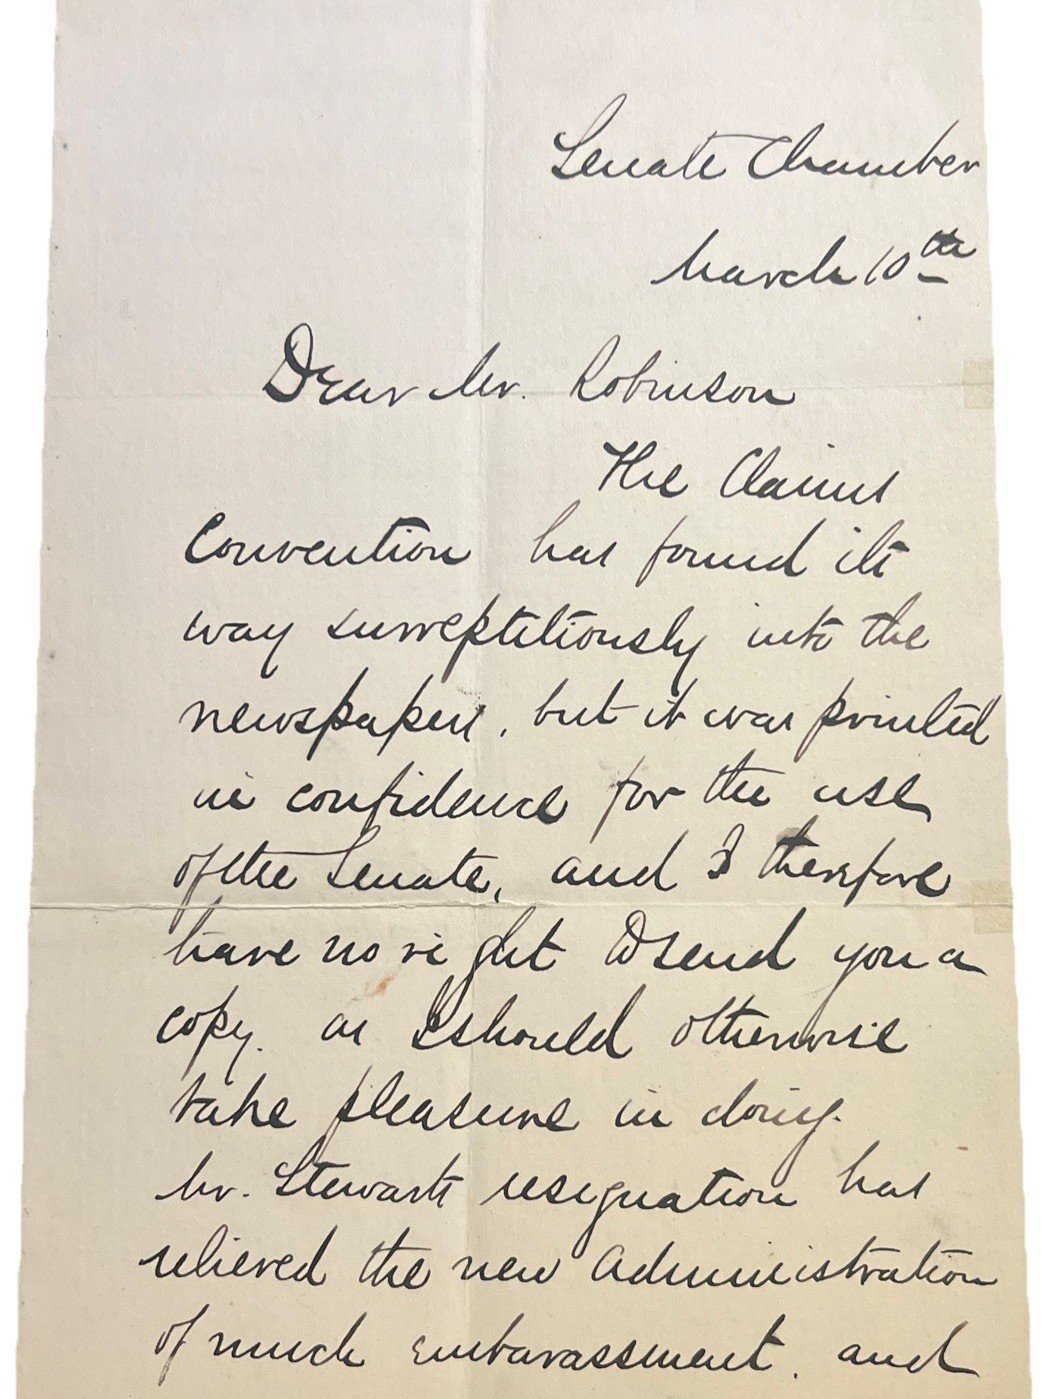 Senate Chamber
March 10th
Dear Mr. Robinson
The Claims
Convention has found its
way surreptitiously into the
newspapers, but it was printed
in confidence for the use
of the Senate, and I therefore
have no right to send you a
copy. as I should otherwise
take pleasure in doing.
Mr. Stewarts resignation has
relieved the new Administration
of much embarassment. and